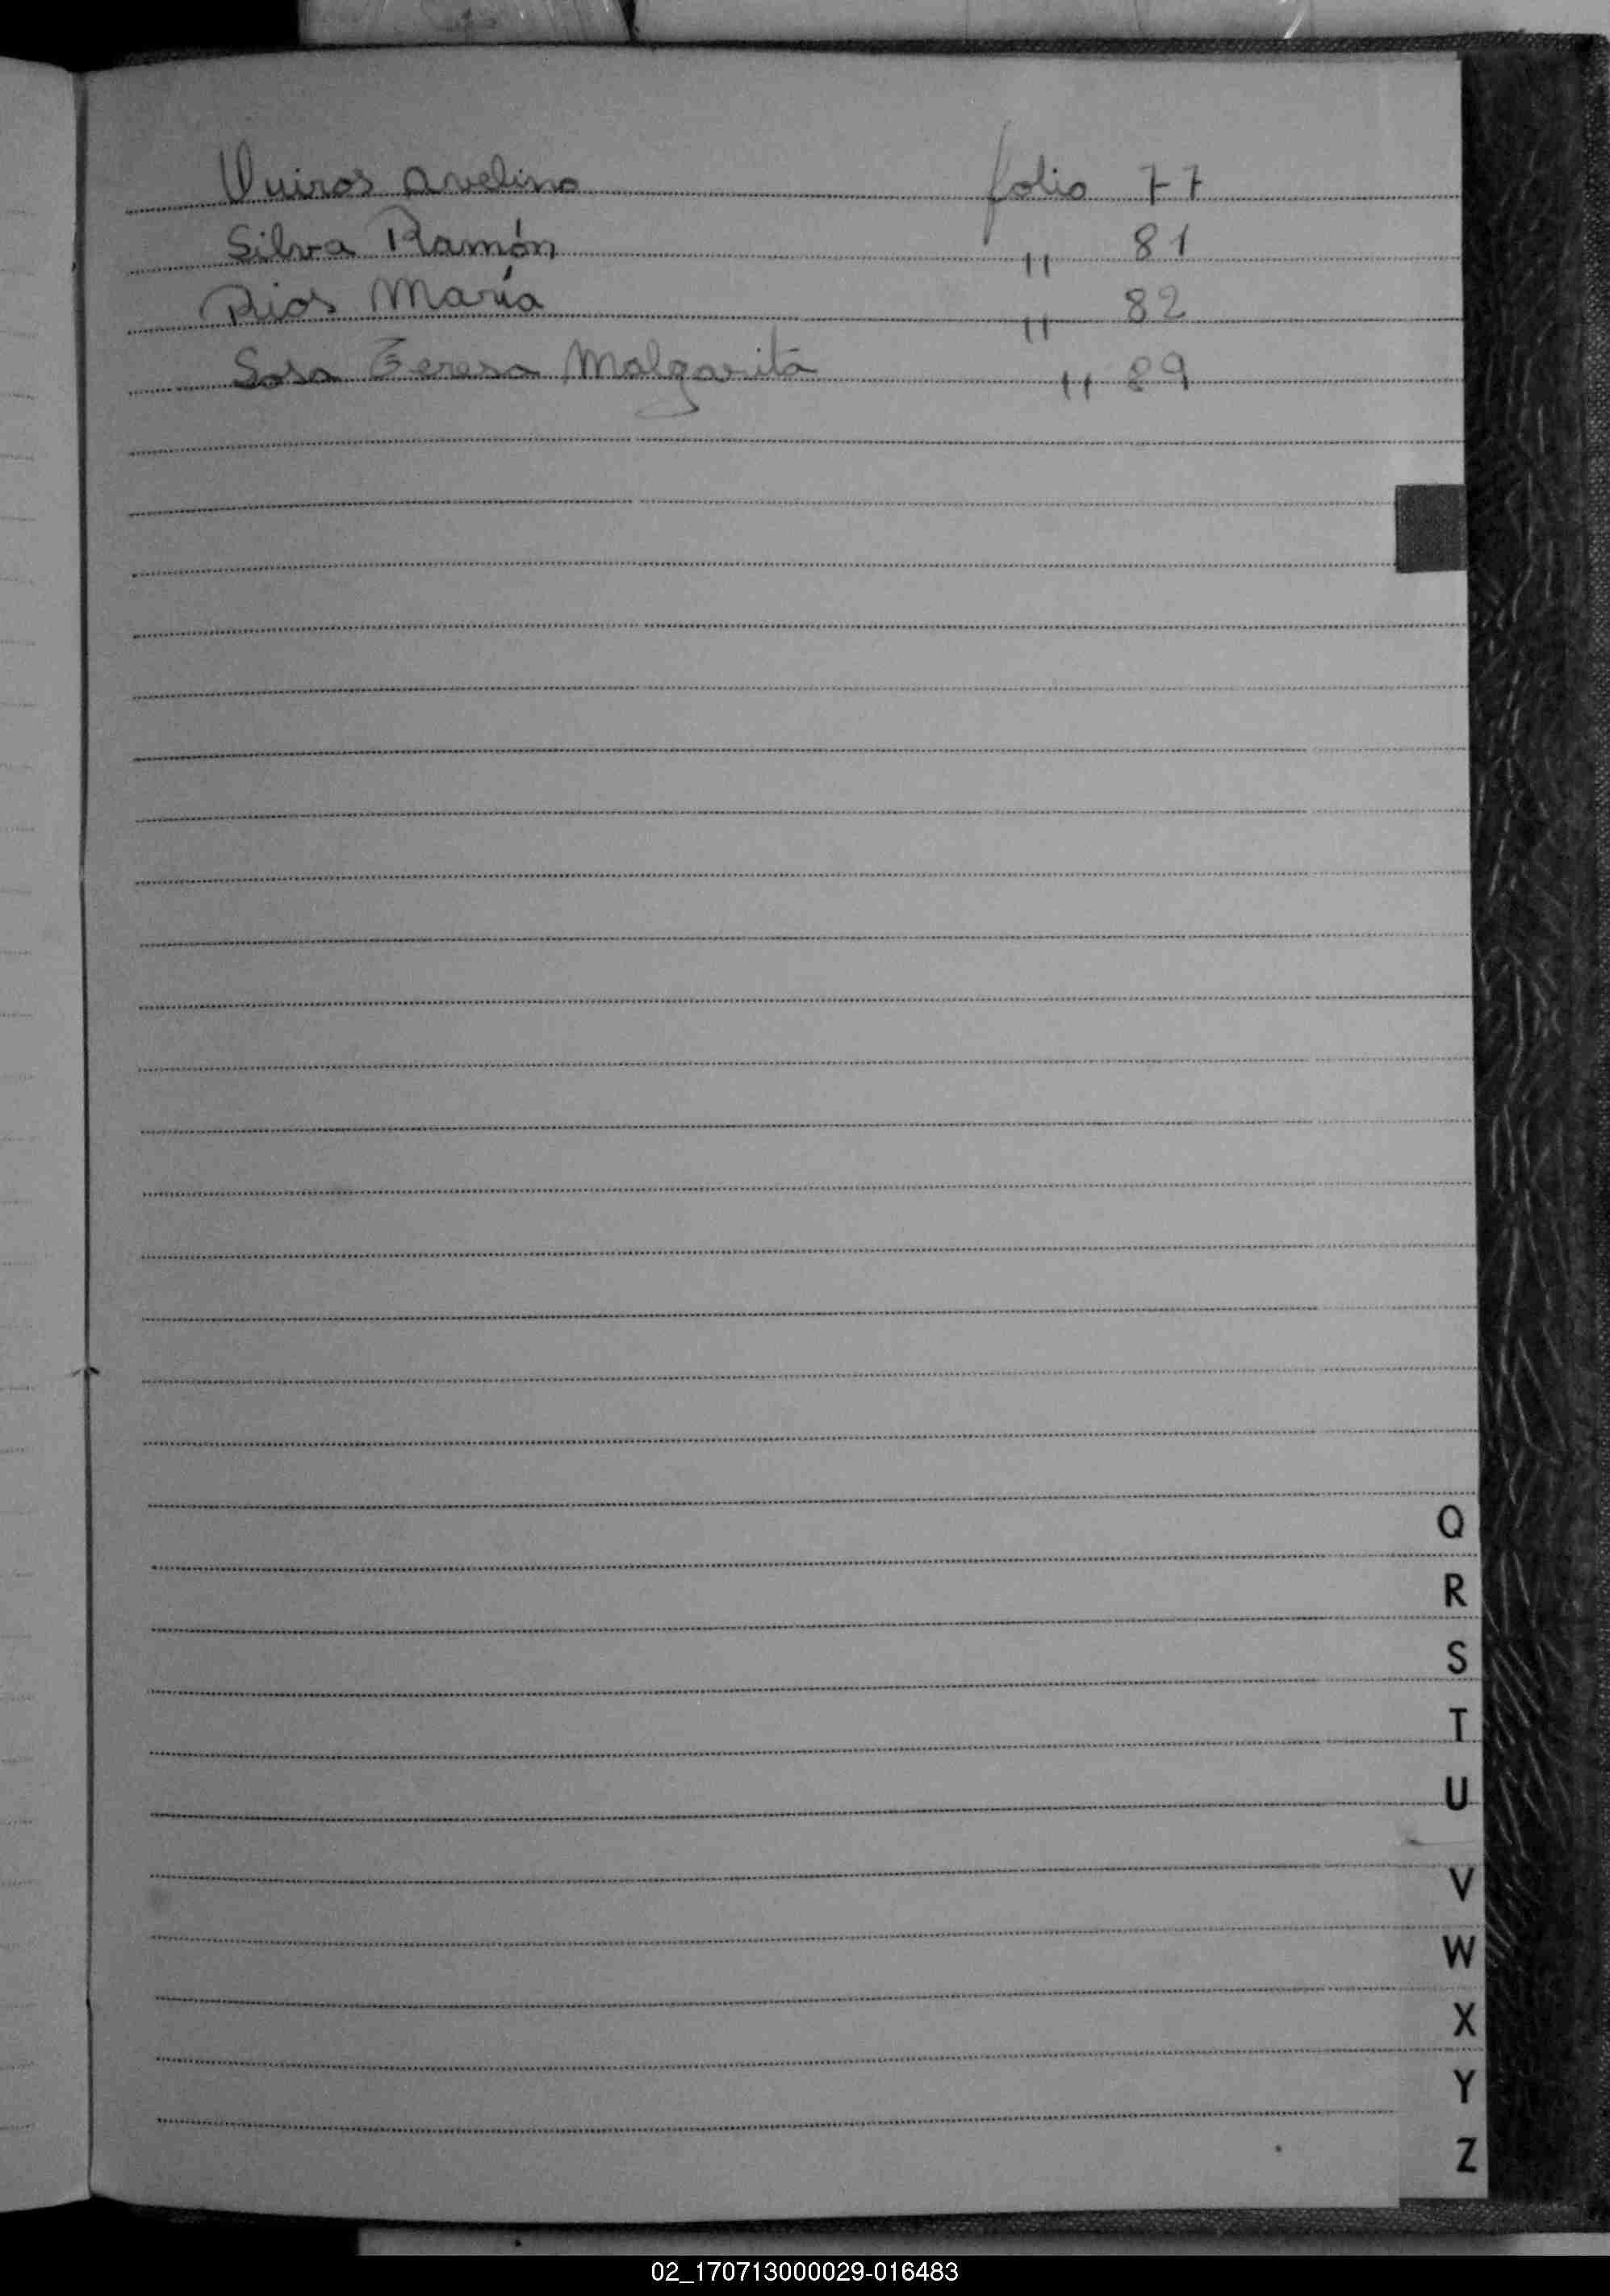 Quiros Avelino folio 77
Silva Ramón " 81
Rios María " 82
Sosa Teresa Malgarita " 89
Q
R
S
T
U
V
W
X
Y
Z
02_170713000029-016483